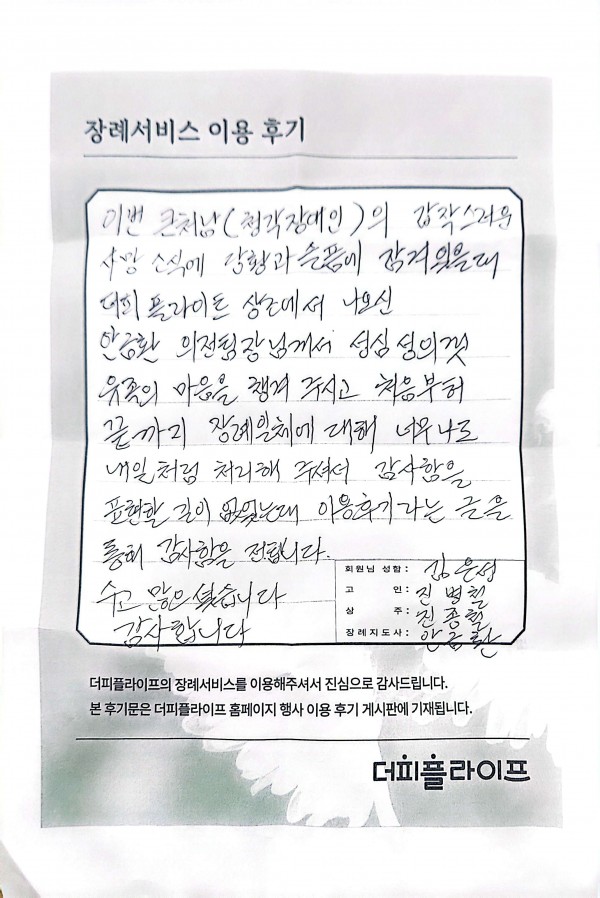 장례서비스 이용 후기
이번 큰처남(청각장애인)의 갑작스러운
사망 소식에 당황과 슬픔에 잠겨있을때
더피플라이프 상조에서 나오신
안금환 의전팀장님께서 성심 성의껏
유족의 마음을 챙겨 주시고 처음부터
끝까지 장례일체에 대해 너무나도
내일처럼 처리해 주셔서 감사함을
표현할 길이 없었는데 이용후기라는 글을
통해 감사함을 전합니다.
수고 많으셨습니다
감사합니다
회원님 성함 : 김은성
고 인 : 진병철
상 주 : 진종철
장례지도사 : 안금환
더피플라이프의 장례서비스를 이용해주셔서 진심으로 감사드립니다.
본 후기문은 더피플라이프 홈페이지 행사 이용 후기 게시판에 기재됩니다.
더피플라이프